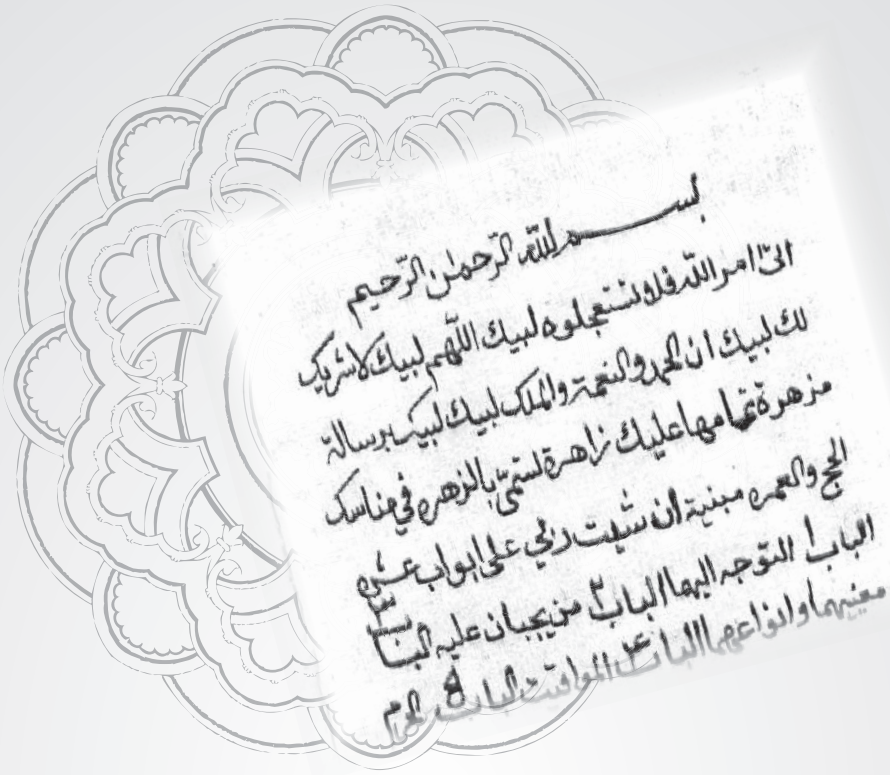 بسم الله الرحمن الرحيم
اتى امر الله فلا تستعجلوه لبيك اللهم لبيك لا شريك
لك لبيك ان الحمد والنعمة والملك لبيك لبيك برسالة
مزهرة تمامها عليك زاهرة لستمي بالزهره في مناسك
الحج والعمره مبنية ان شيت على ابواب عشره
الباب ا التوجه اليها الباب ٢ من يجبان عليه الباب ٣
معنيهما وانواعهما الباب ع المواقيت الباب ه